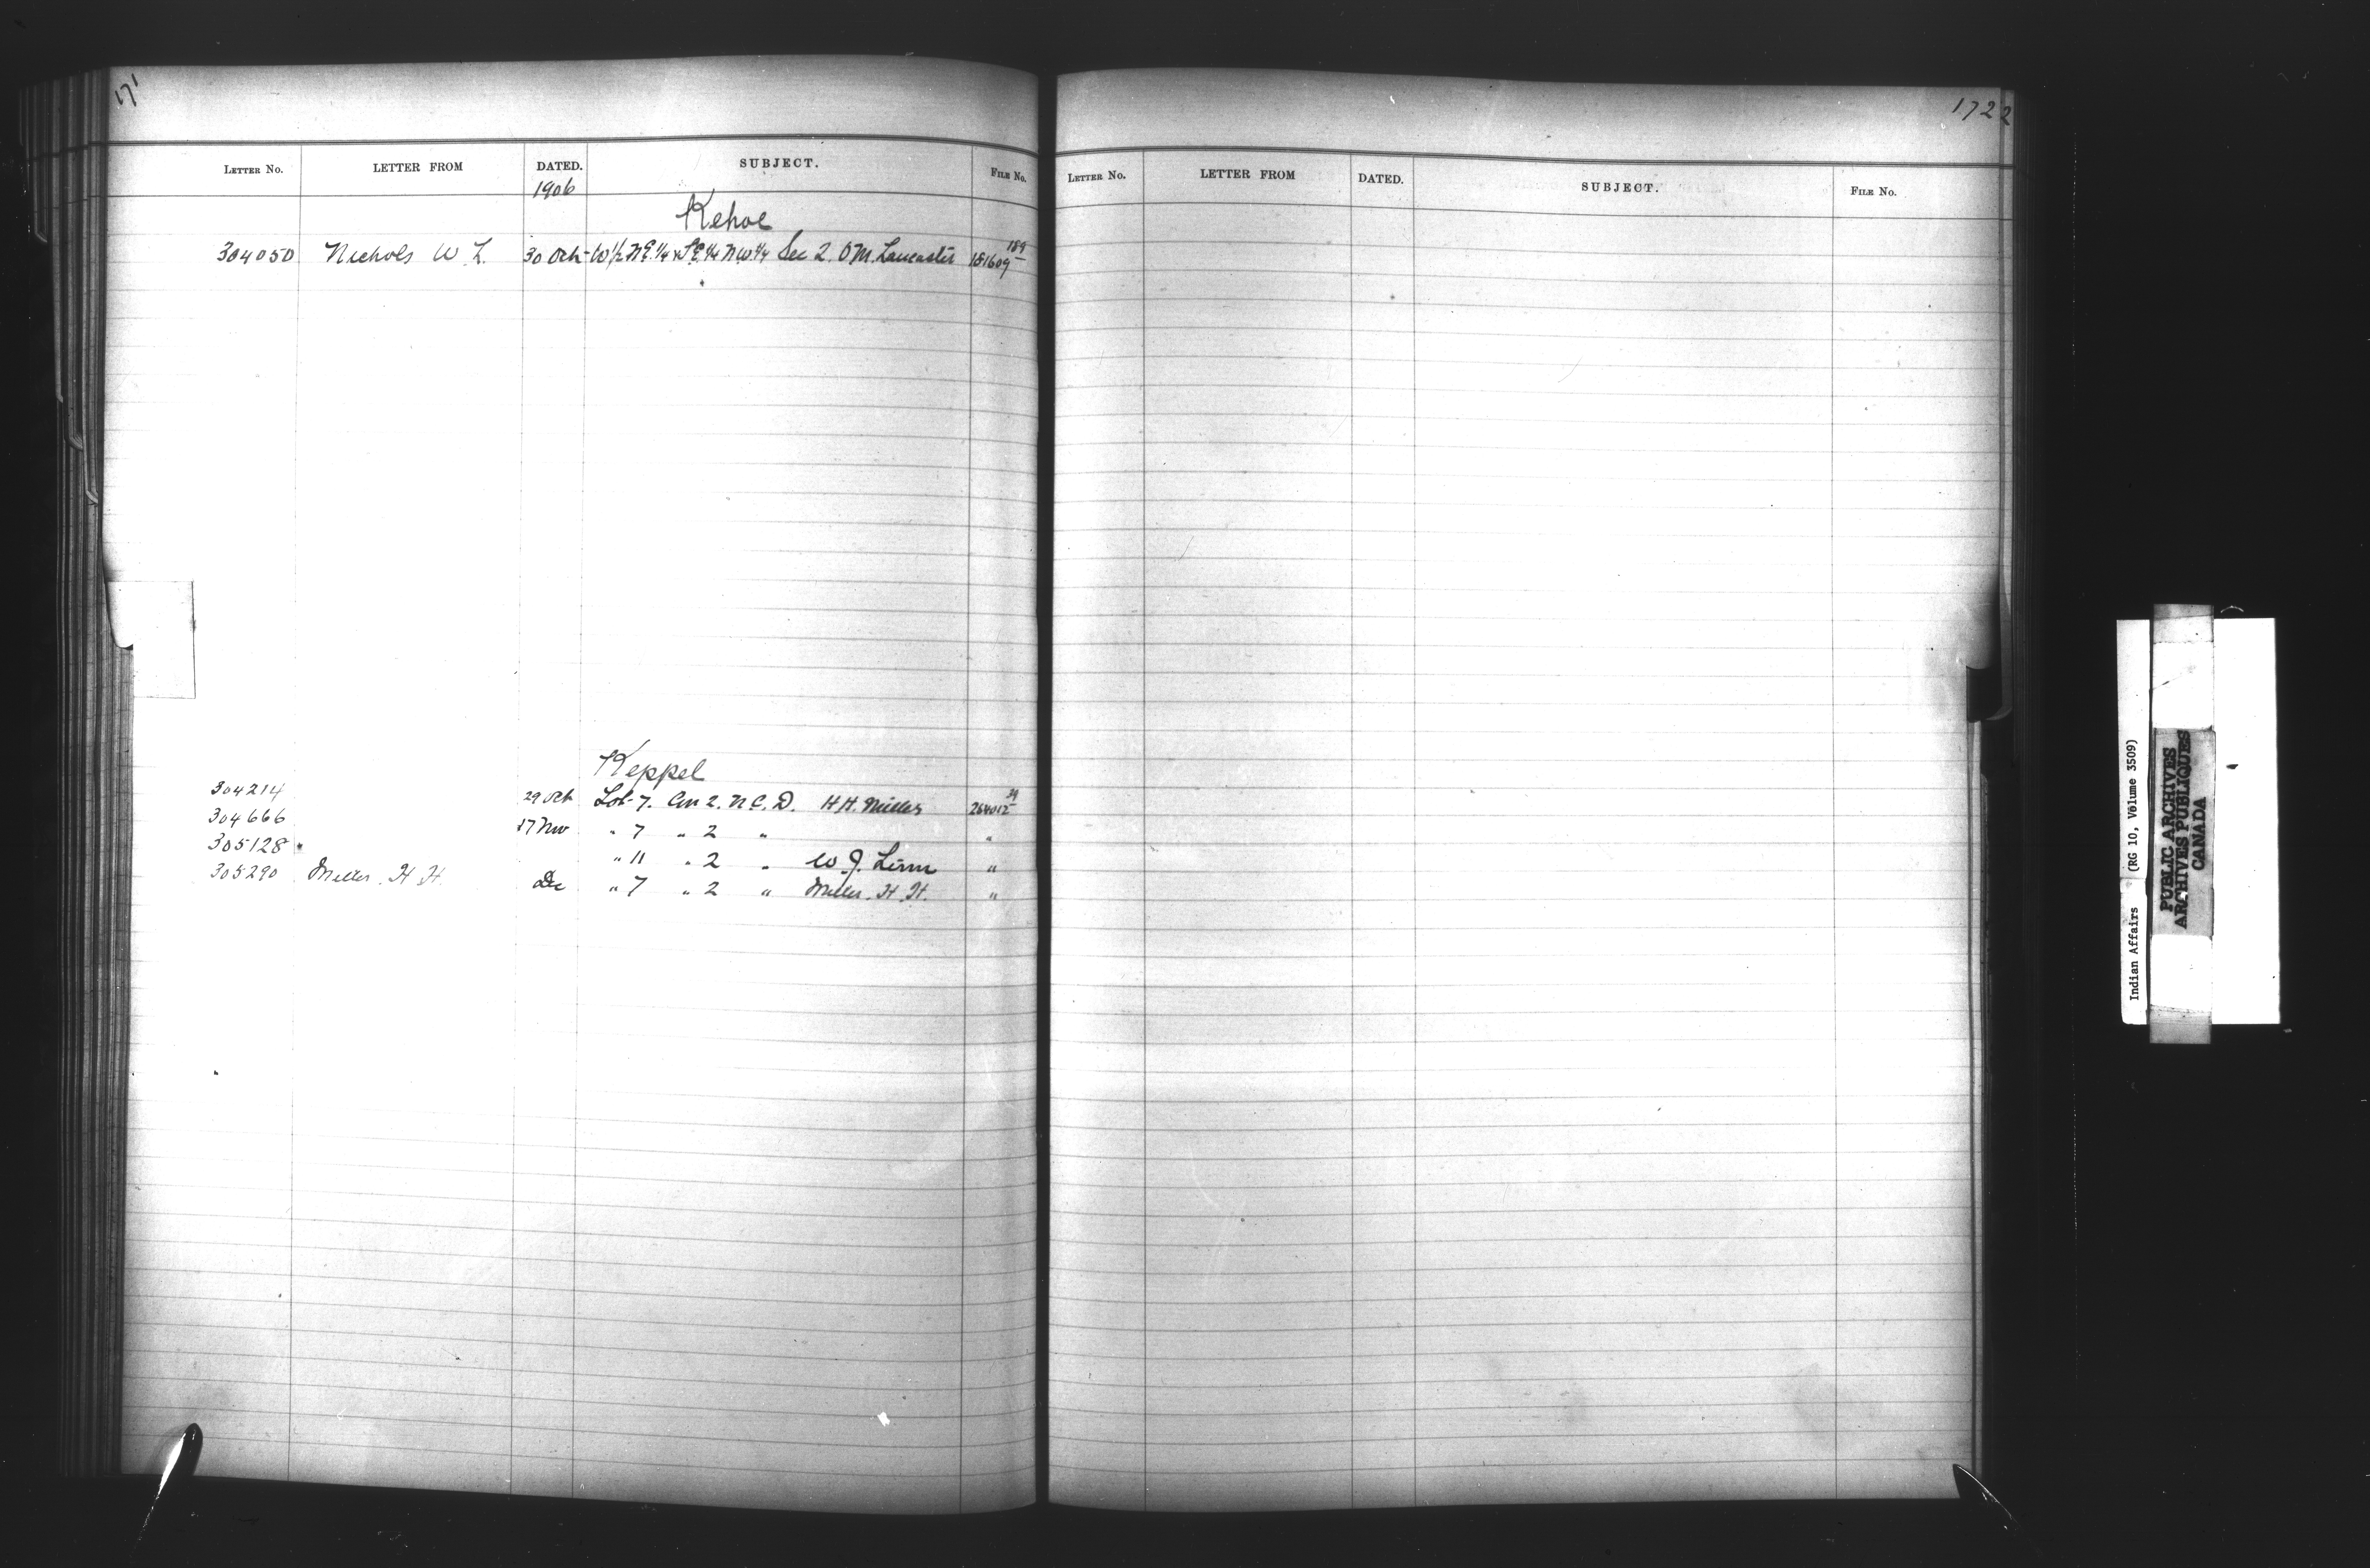 171
LETTER NO. LETTER FROM DATED. SUBJECT. FILE NO.
1906
Kehoe
304050 Nichols W L. 30 Oct W 1/2 N E. 1/4 & S E 1/4 N W. 1/4 Sec 2. O M. Lancaster 181609 189
Keppel
304214 29 Oct Lot 7. Con 2. N C. D. H H. Miller 264012 39
304666 17 Nov " 7 " 2 " "
305128 " 11 " 2 " W. J. "
305290 Miller. H H. Dec " 7 " 2 " Miller. H. H. "
172 2
LETTER NO. LETTER FROM DATED. SUBJECT. FILE NO.
Indian Affairs (RG 10, Volume 3509)
PUBLIC ARCHIVES
ARCHIVES PUBLIQUES
CANADA